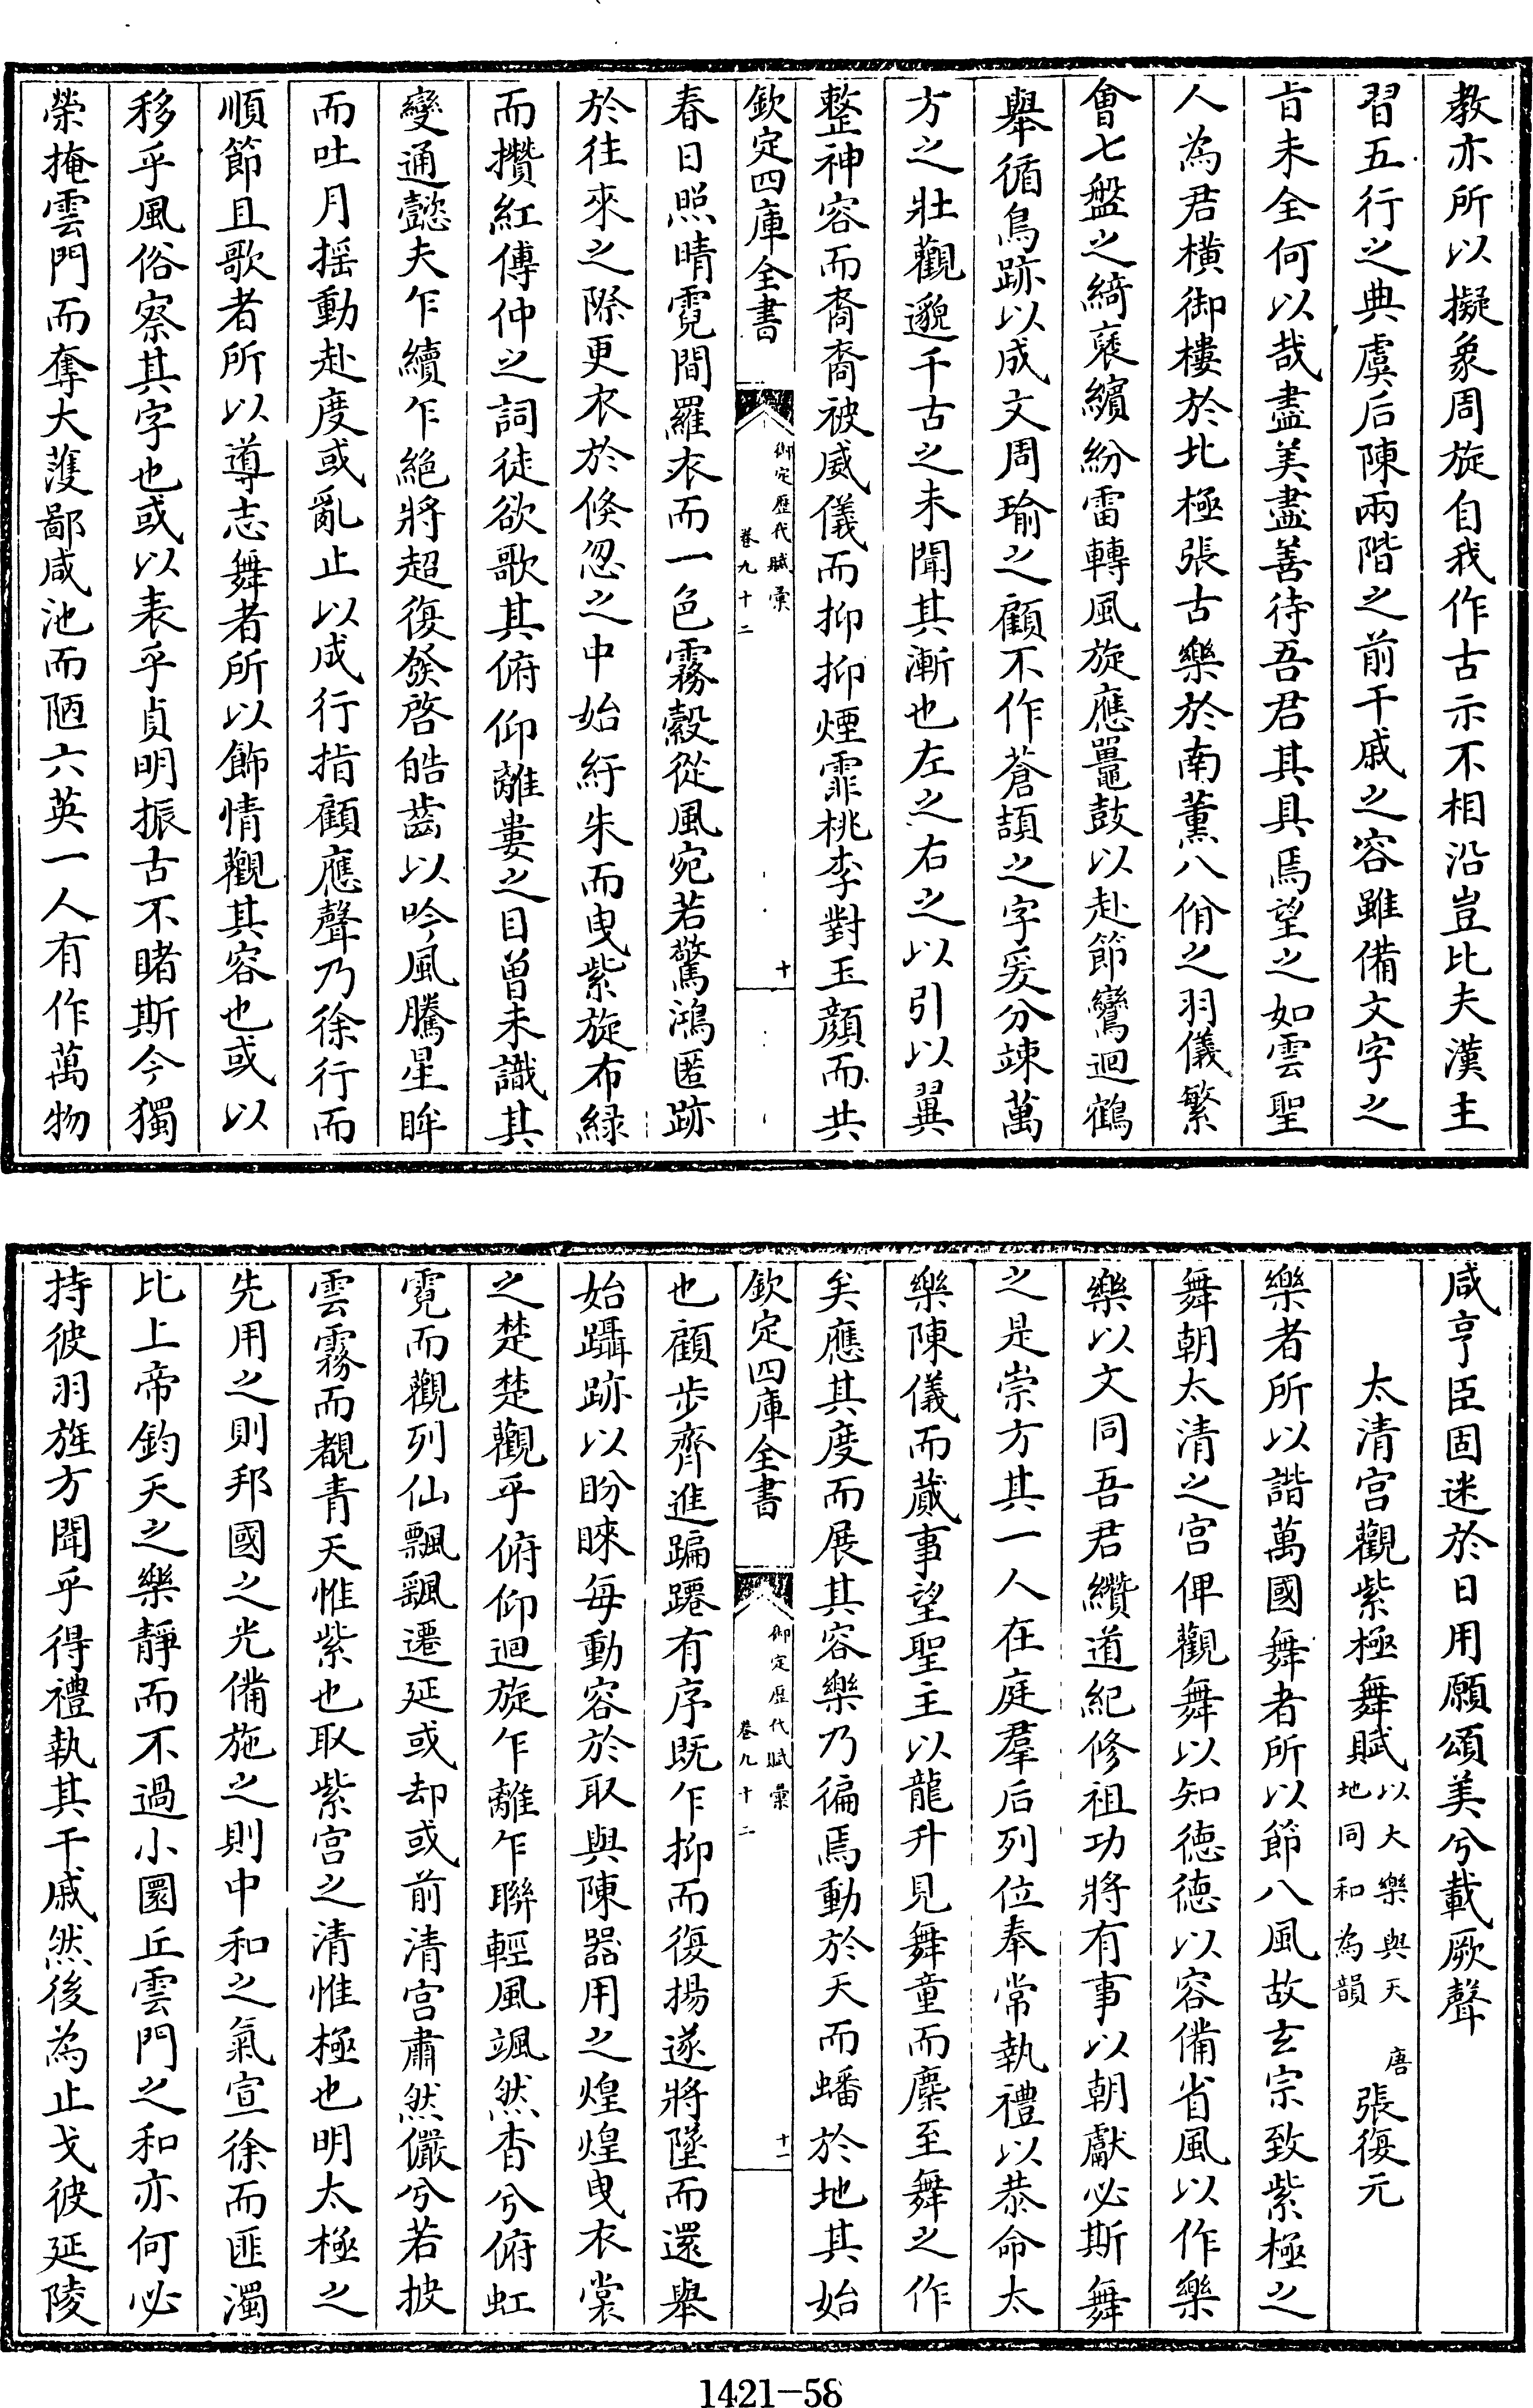 教亦所以擬象周旋自我作古示不相沿豈比夫漢主
習五行之典虞后陳兩階之前干戚之容雖備文字之
㫖未全何以哉盡美盡善待吾君其具焉望之如雲聖
人為君横御樓於北極張古樂於南薰八佾之羽儀繁
會七盤之綺裒繽紛雷轉風旋應鼉鼓以赴節鸞迴鶴
舉循鳥跡以成文周瑜之顧不作蒼頡之字爰分竦萬
方之壯觀邈千古之未聞其漸也左之右之以引以翼
整神容而裔裔被威儀而抑抑煙霏桃李對玉顔而共
欽定四庫全書
御定歴代賦彙
卷九十二
十
春日照晴霓間羅衣而一色霧縠從風宛若驚鴻匿跡
於往來之際更衣於倏忽之中始紆朱而曳紫旋布緑
而攢紅傅仲之詞徒欲歌其俯仰離婁之目曾未識其
變通懿夫乍續乍絶將超復發啓皓齒以吟風騰星眸
而吐月摇動赴度或亂止以成行指顧應聲乃徐行而
順節且歌者所以導志舞者所以飾情觀其容也或以
移乎風俗察其字也或以表乎貞明振古不睹斯今獨
榮掩雲門而奪大䕶鄙咸池而陋六英一人有作萬物
咸亨臣固迷於日用願頌美兮載厥聲
太清宫觀紫極舞賦 以大樂與天地同和為韻 唐 張復元
樂者所以諧萬國舞者所以節八風故玄宗致紫極之
舞朝太清之宫俾觀舞以知德德以容備省風以作樂
樂以文同吾君纘道紀修祖功將有事以朝獻必斯舞
之是崇方其一人在庭羣后列位奉常執禮以恭命太
樂陳儀而蕆事望聖主以龍升見舞童而麇至舞之作
矣應其度而展其容樂乃徧焉動於天而蟠於地其始
欽定四庫全書
御定歴代賦彙
卷九十二
十一
也顧步齊進蹁躚有序既乍抑而復揚遂將墜而還舉
始躡跡以盼睞每動容於取與陳器用之煌煌曳衣裳
之楚楚觀乎俯仰迴旋乍離乍聯輕風颯然杳兮俯虹
霓而觀列仙飄飖遷延或却或前清宫肅然儼兮若披
雲霧而覩青天惟紫也取紫宫之清惟極也明太極之
先用之則邦國之光備施之則中和之氣宣徐而匪濁
比上帝鈞天之樂靜而不過小圜丘雲門之和亦何必
持彼羽旄方聞乎得禮執其干戚然後為止戈彼延陵
1421-58